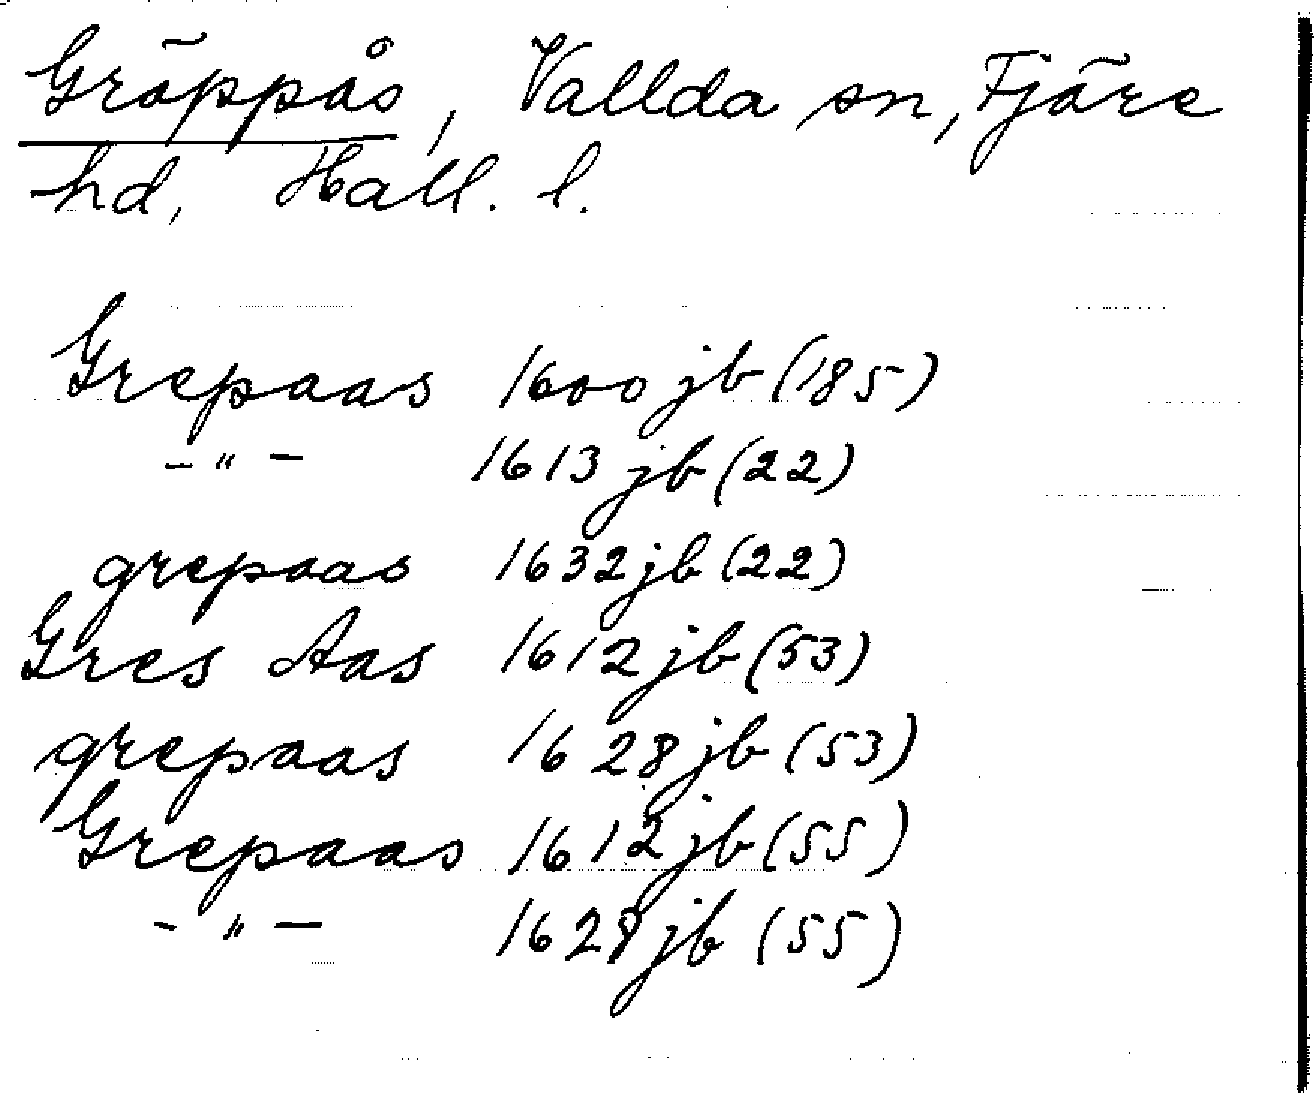 Gröppås, Vallda sn, Fjäre
hd, Hall. l.
Grepaas 1600 jb (185)
-"- 1613 jb (22)
grepaas 1632 jb (22)
Gres Aas 1612 jb (53)
grepaas 1628 jb (53)
Grepaas 1612 jb (55)
-"- 1628 jb (55)